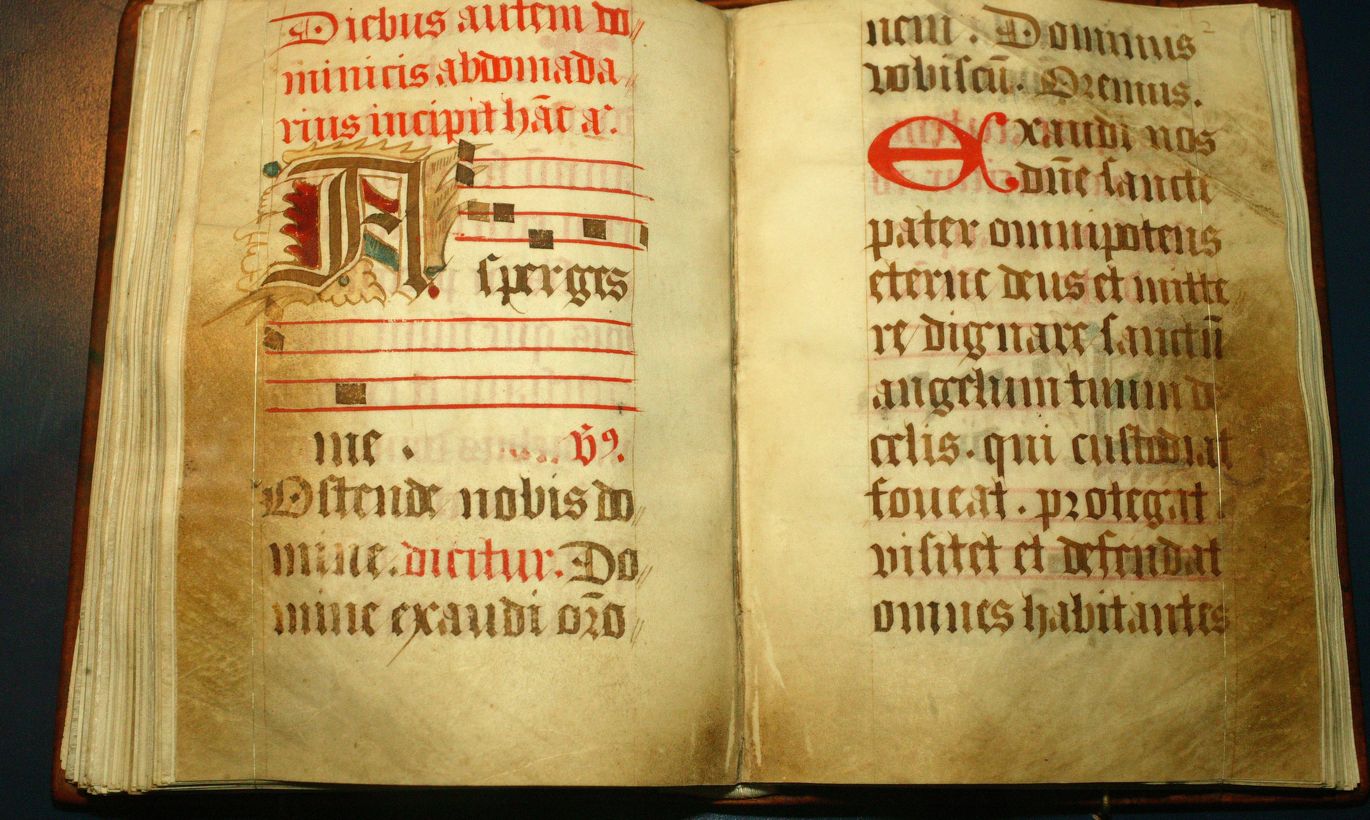 Diebus autem do
minicis abdomada
rius incipit hāc aͣ.
Asperges
me .
℣ꝰ.
Ostende nobis do
mine. dicitur. Do
mine exaudi orō
nem . Dominus
vobiscū. Oremus.
Exaudi nos
dn̄e sancte
pater omnipotens
eterne deus et mitte
re dignare sanctū
angelum tuum de
celis. qui custodiat
foueat . protegat
visitet et defendat
omnes habitantes